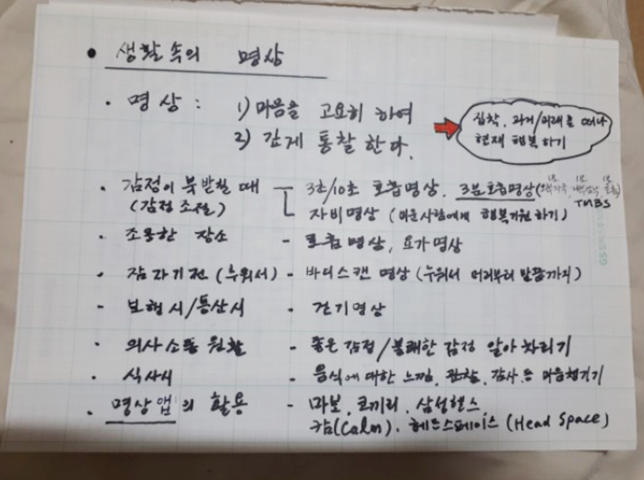 • 생활속의 명상
· 명상 : 1) 마음을 고요히 하여
2) 깊게 통찰한다.
집착, 과거/미래를 떠나
현재 행복하기
· 감정이 북받칠 때 - 3초/10초 호흡명상, 3분호흡명상(
(감정조절) 자비명상 (미운사람에게 행복기원하기) TMBS
· 조용한 장소 - 호흡명상, 요가명상
· 잠자기전 (누워서) - 바디스캔 명상 (누워서 머리부터 발끝까지)
· 보행시/등산시 - 걷기명상
· 의사소통 원활 - 좋은감정/불쾌한 감정 알아차리기
· 식사시 - 음식에 대한 느낌, 관찰, 감사 등 마음챙기기
· 명상앱의 활용 - 마보, 코끼리, 삼성헬스
캄(Calm), 헤드스페이스 (Head Space)